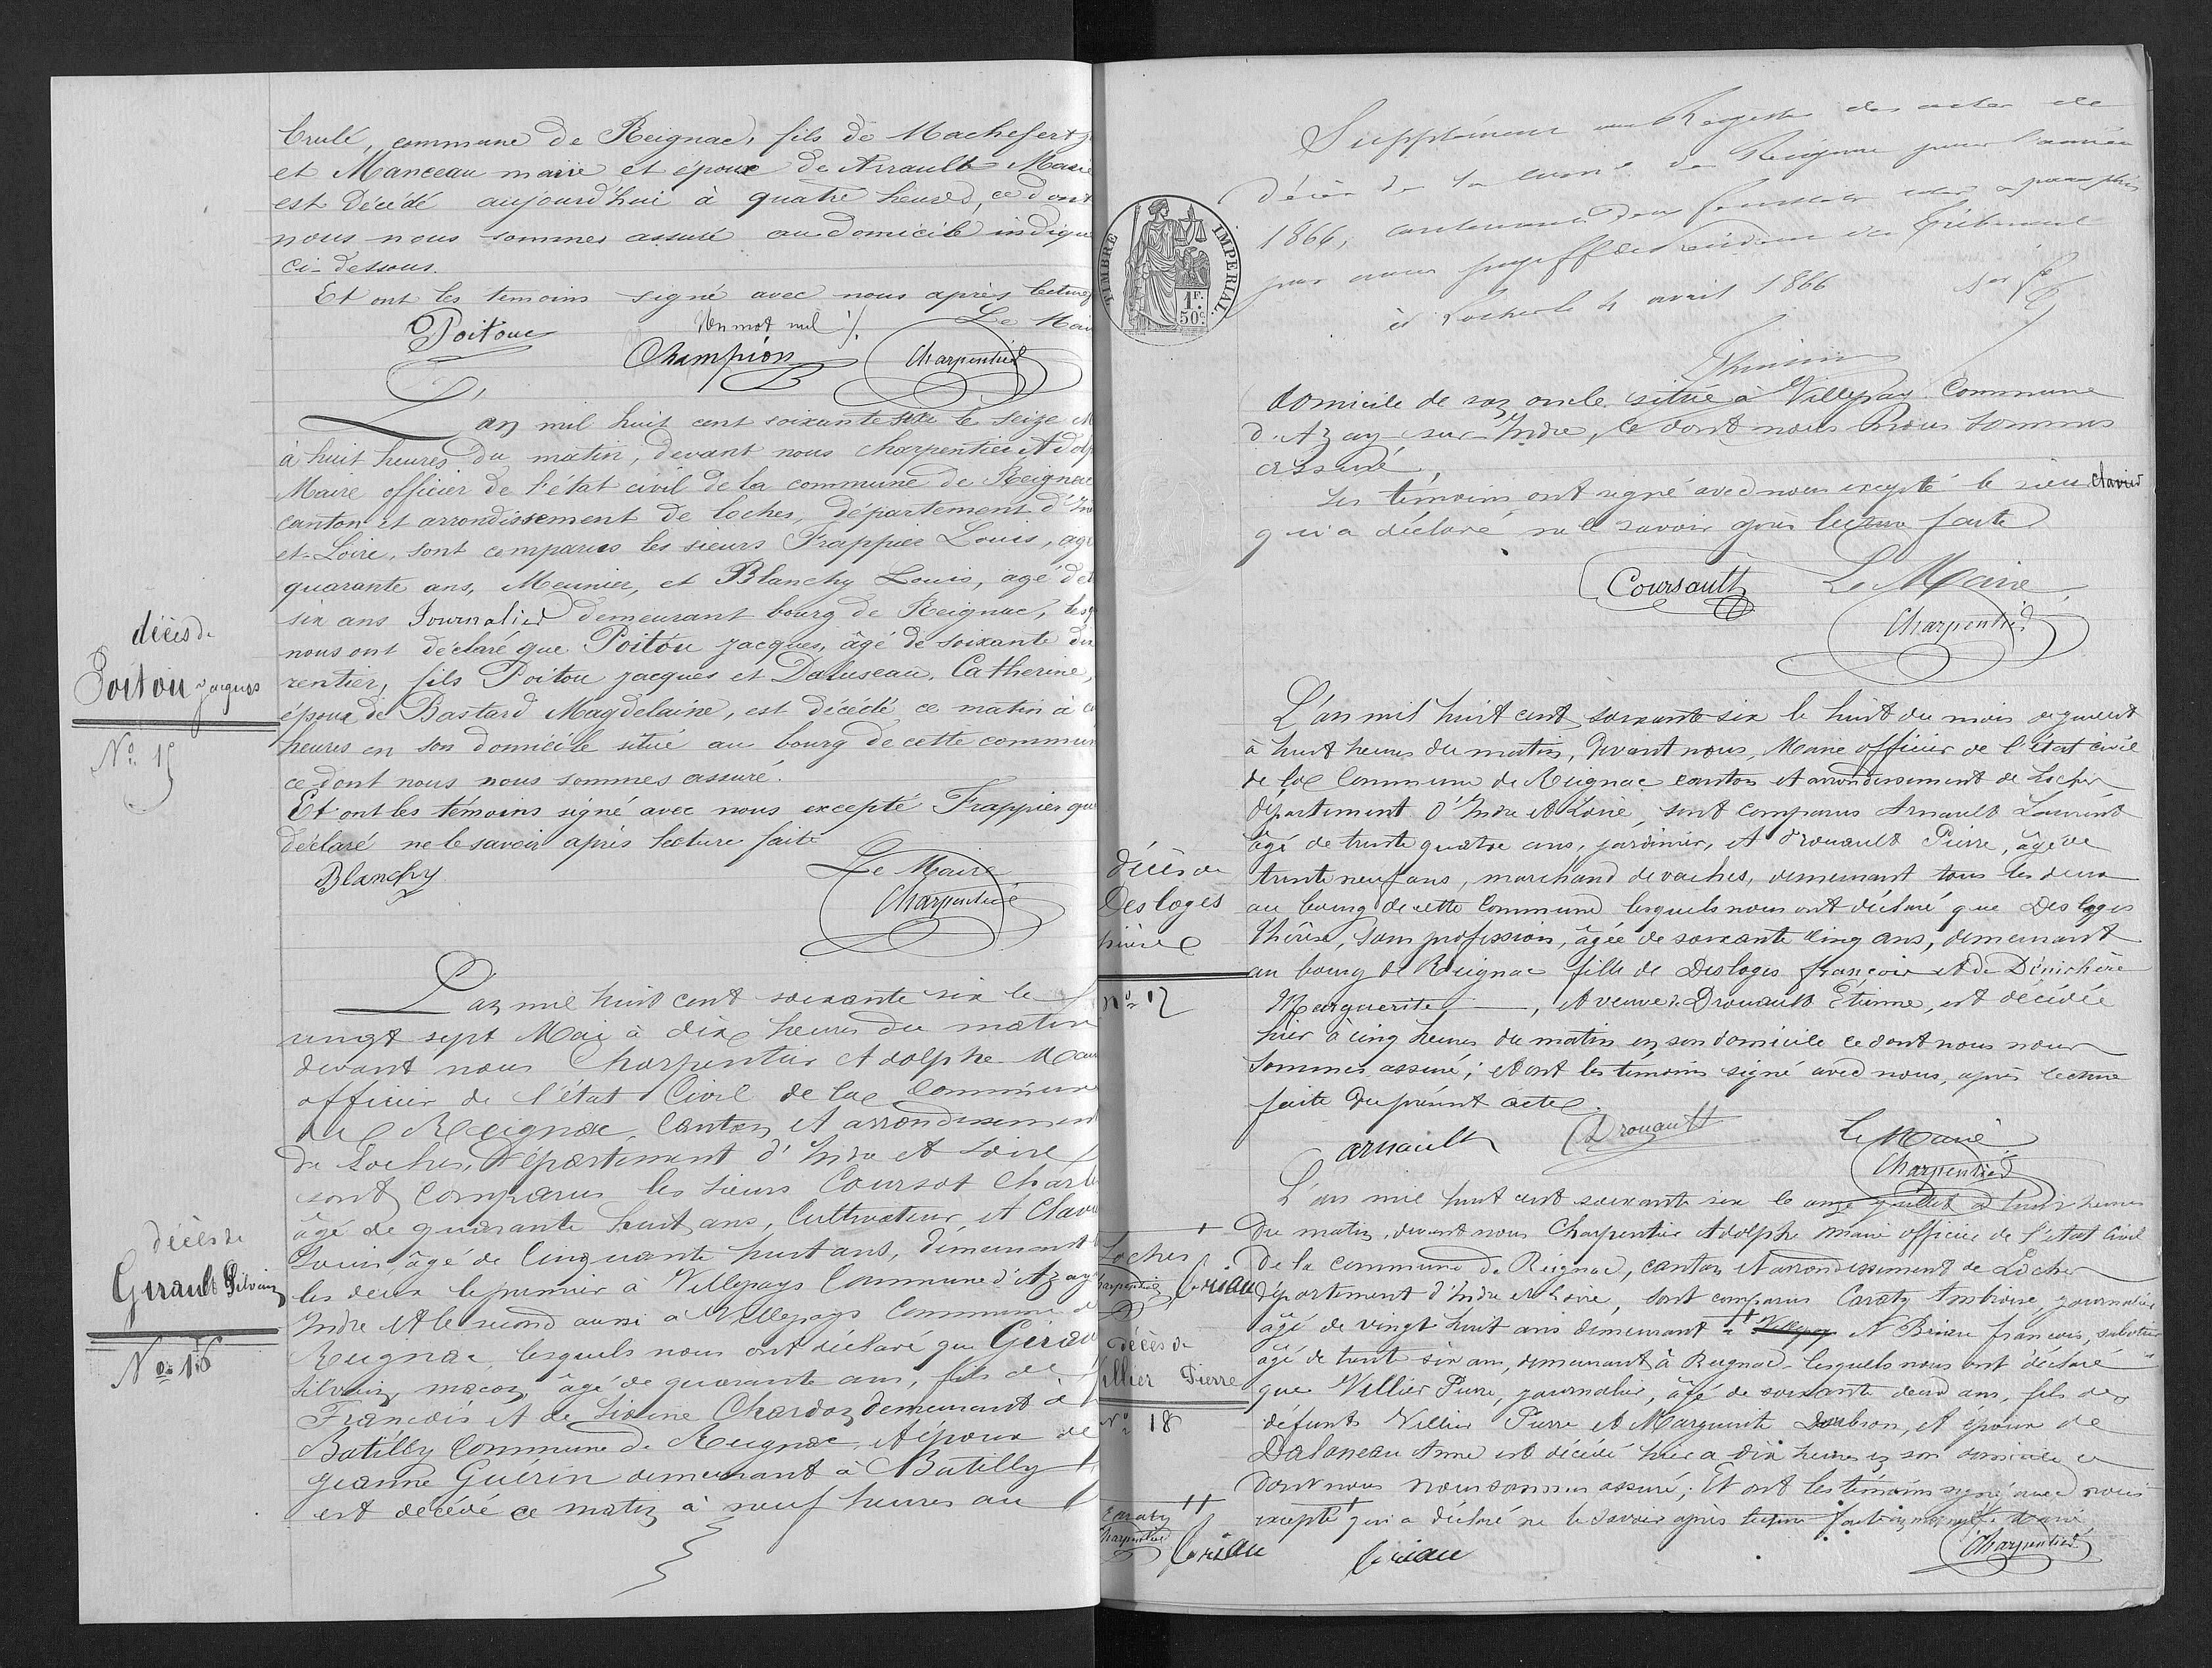 brulé, commune de Reignac, fils de Machefert
et Manceau marie et époux de Arrault Marie
est décédé aujourd'hui à quatre heures, ce dont
nous nous sommes assuré au domicile indiqué
ci-dessous.
Et ont les temoins signé avec nous après lecture
Un mot nul ./. Le Mai
Poitou Champion Charpentier
L'an mil huit cent soixante six le seize M
à huit heures du matin, devant nous Charpentier Adolp
Maire officier de l'état civil de la commune de Reignac
canton et arrondissement de Loches, département d'In
et-Loire, sont comparus les sieurs Frappier Louis, agé
quarante ans, Meunier, et Blanchy Louis, agé de
six ans Journalier demeurant bourg de Reignac, lesq
décès de
Poitou Jacques
No 15
nous ont déclaré que Poitou Jacques, âgé de soixante dix
rentier, fils Poitou Jacques et Daluseau Catherine,
époux de Bastard Magdelaine, est décédé ce matin à
heures en son domicile situé au bourg de cette commun
ce dont nous nous sommes assuré.
Et ont les témoins signé avec nous excepté Frappier qui
déclaré ne le savoir après lecture faite
Blanchy Le Maire
Charpentier
L'an mil huit cent soixante six le
vingt sept Mai à dix heures du matin
devant nous Charpentier Adolphe Mai
officier de l'état Civil de la Commune
de Reignac, Canton et arrondissement
de Loches, Département d'Indre et Loire
sont Comparus les sieurs Coursot Charl
âgé de quarante huit ans, Cultivateur, et Clavi
Louis, âgé de Cinquante huit ans, demeurant
décès de
Girault Silvain
No 16
les deux le premier à Villepays Commune d'Azay
Indre et le second aussi à Villepays Commune d
Reignac, lesquels nous ont déclaré que Girau
Silvain, maçon, âgé de quarante ans, fils de
François et de Sixine Chardon, demeurant à
Batilly Commune de Reignac, et époux de
Jeanne Guérin demeurant à Batilly
est décédé ce matin à neuf heures au
Supplément au Registre des actes de
décès de la Commune de Reignac pour l'année
1866, contenant deux feuillets cotés et paraphés
par nous Président du Tribunal
à Loches le 4 avril 1866
TIMBRE IMPERIAL
1F. 50c.
domicile de son oncle situé à Villepays Commune
d'Azay-sur-Indre, ce dont nous nous sommes
assuré.
Les témoins ont signé avec nous excepté le sieur Clavier
qui a déclaré ne le savoir après lecture faite
Coursault Le Maire,
Charpentier
L'an mil huit cent soixante six le huit du mois de juillet
à huit heures du matin, devant nous, Maire officier de l'état civil
de la Commune de Reignac canton et arrondissement de Loches
département d'Indre et Loire, sont comparus Arnault Laurent
âgé de trente quatre ans, jardinier, et Drouault Pierre, âgé de
trente neuf ans, marchand de vaches, demeurant tous les deux
décès de
Desloges
No 17
au bourg de cette Commune lesquels nous ont déclaré que Desloges
Thérèse, sans profession, âgée de soixante cinq ans, demeurant
au bourg de Reignac fille de Desloges françois et de Dénichère
Marguerite, et veuve de Drouault Étienne, est décédée
hier à cinq heures du matin en son domicile ce dont nous nous
sommes assuré; et ont les témoins signé avec nous, après lecture
faite du présent acte.
arnault Drouault Le Maire
Charpentier
L'an mil huit cent soixante six le onze juillet à huit heures
du matin, devant nous Charpentier Adolphe maire officier de l'état civil
+ Loches
Charpentier Briau
de la commune de Reignac, canton et arrondissement de Loches
département d'Indre et Loire, sont comparus Caraty Ambroise, journalier
âgé de vingt huit ans demeurant à + Villepays et Briau françois, sabotier
décès de
Villier Pierre
No 18
âgé de trente six ans, demeurant à Reignac lesquels nous ont déclaré
que Villier Pierre, journalier, âgé de soixante deux ans, fils des
défunts Villier Pierre et Marguerite Doubron, et époux de
Dalaneau Anne est décédé hier à dix heures en son domicile ce
dont nous nous sommes assuré; Et ont les témoins signé avec nous
++ Caraty
Charpentier Briau
excepté ++ qui a déclaré ne le savoir après lecture faite
Briau Charpentier